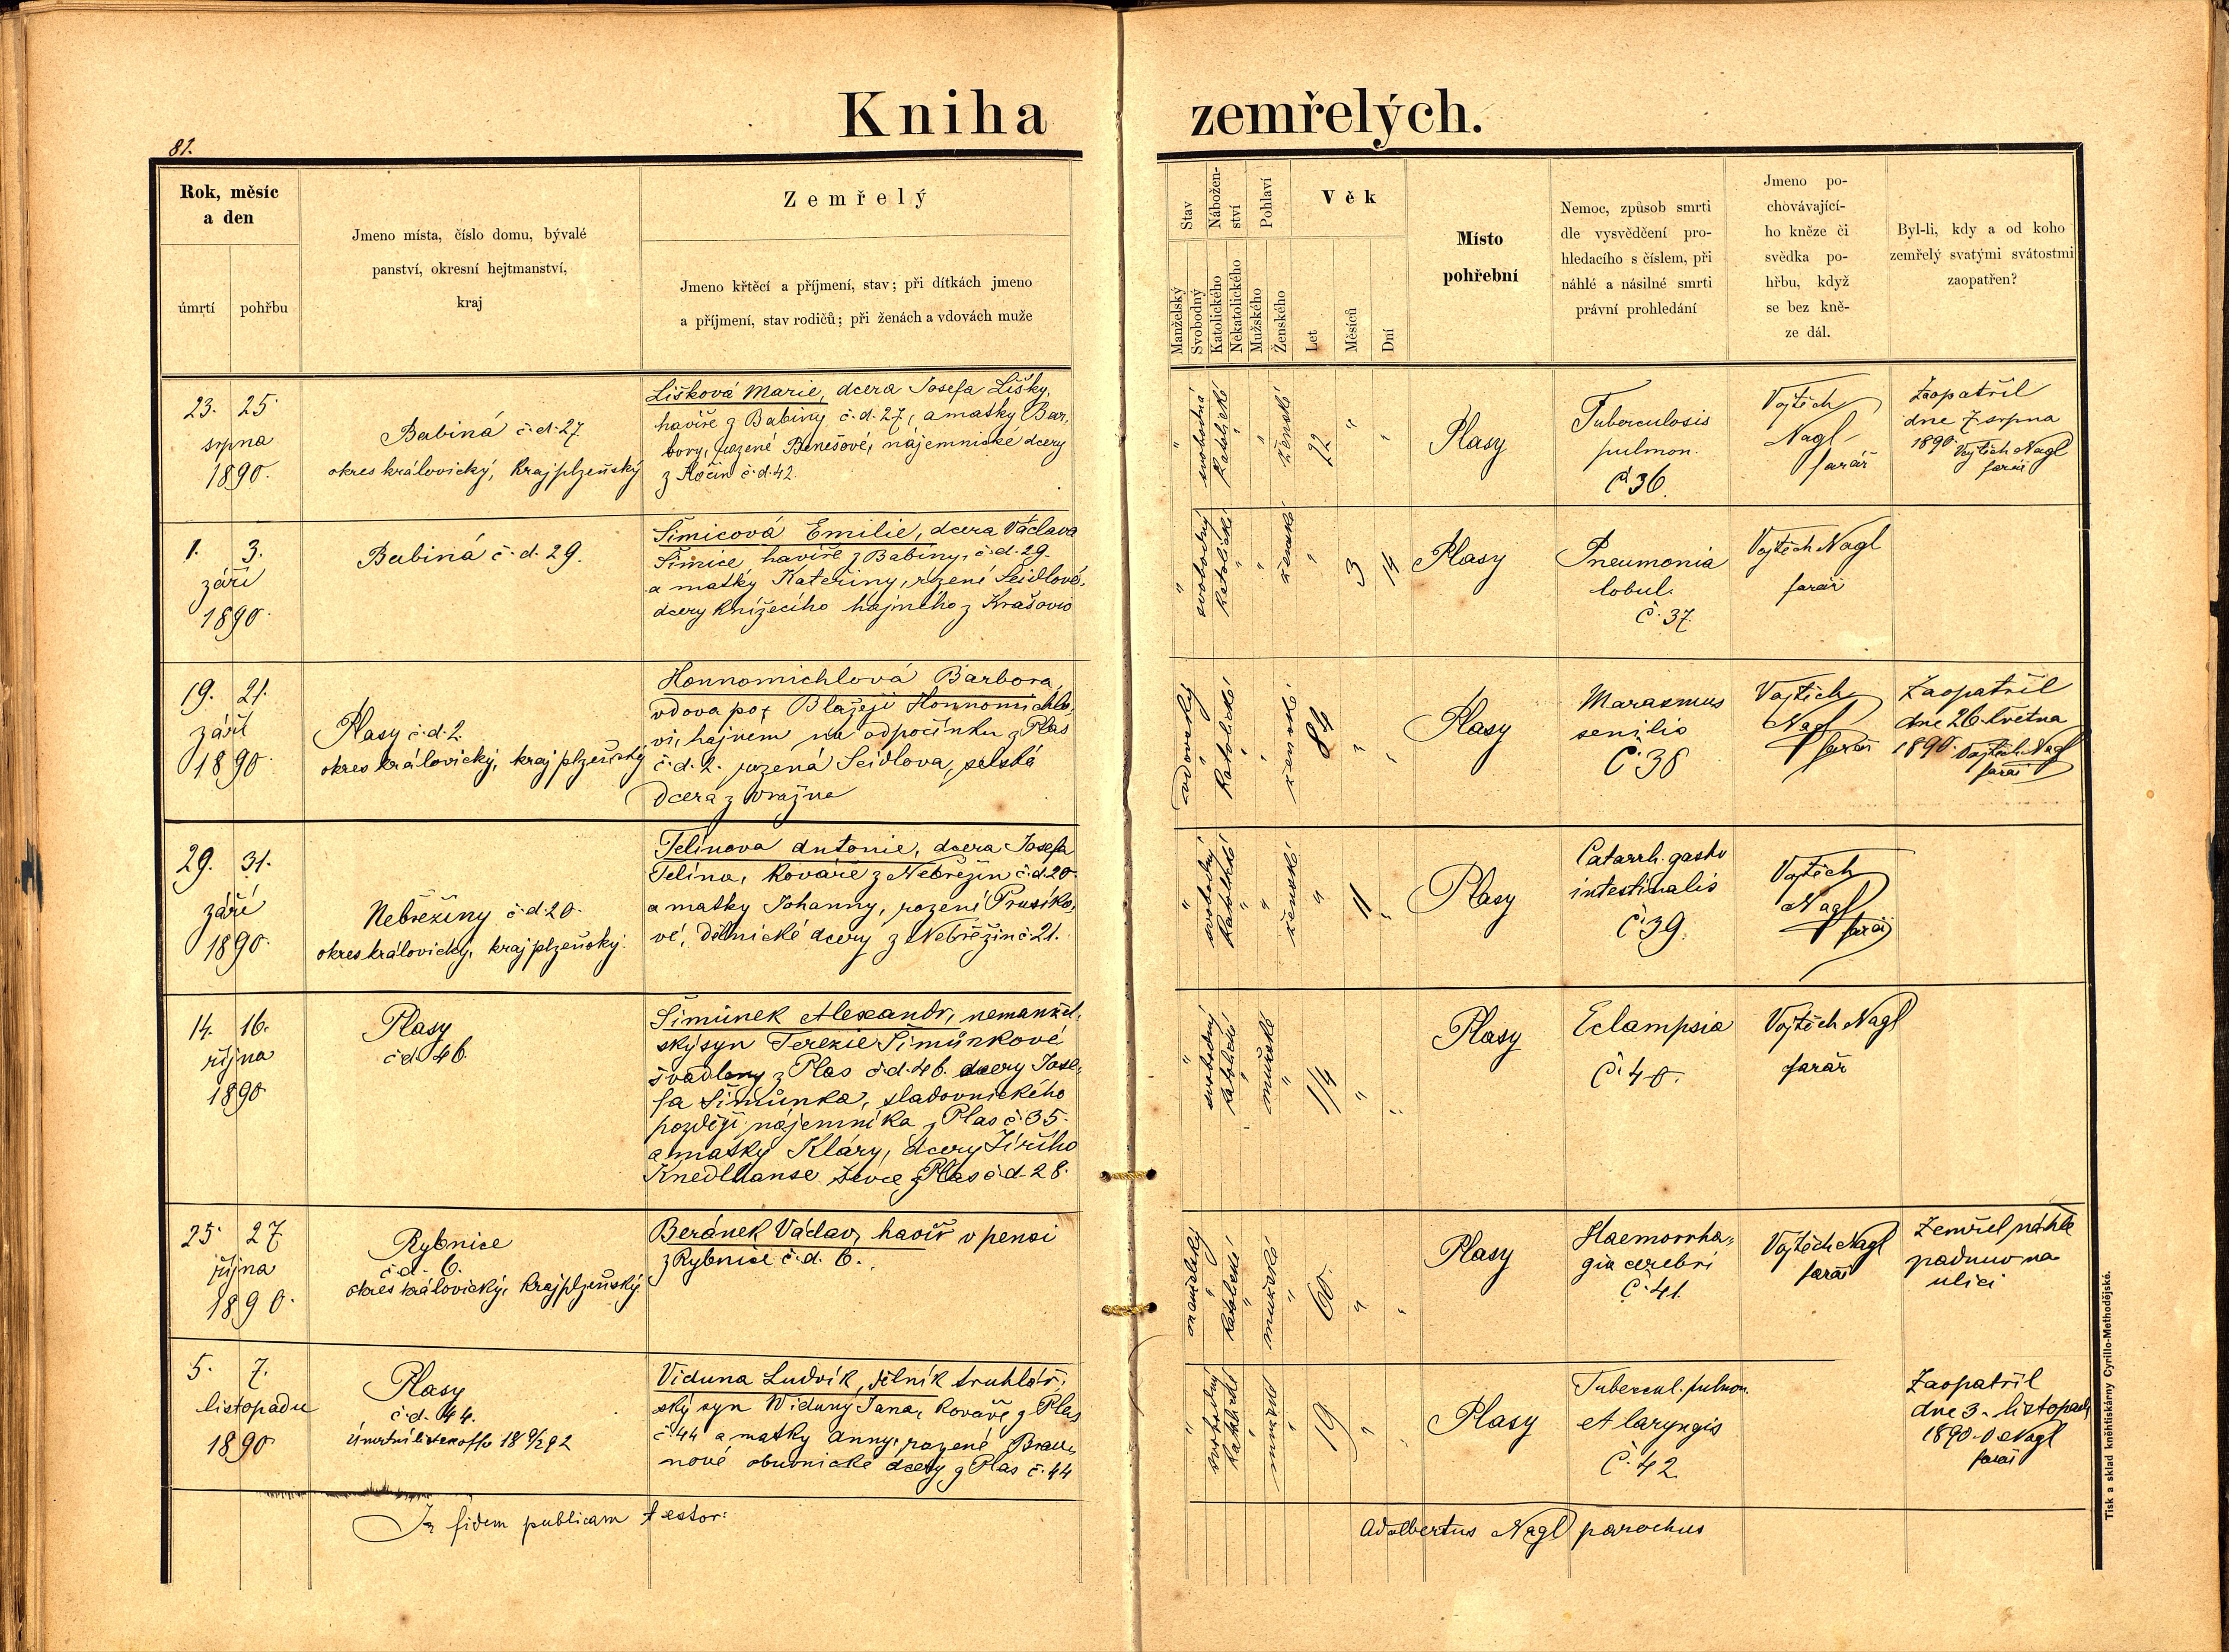 Kniha zemřelých.
81.
Rok, měsíc
a den
úmrtí
pohřbu
Jmeno místa, číslo domu, bývalé
panství, okresní hejtmanství,
kraj
Zemřelý
Jmeno křtěcí a příjmení, stav; při dítkách jmeno
a příjmení, stav rodičů; při ženách a vdovách muže
Stav
Manželský
Svobodný
Nábožen-
ství
Katolického
Nekatolického
Pohlaví
Mužského
Ženského
Věk
Let
Měsíců
Dní
Místo
pohřební
Nemoc, způsob smrti
dle vysvědčení pro-
hledacího s číslem, při
náhlé a násilné smrti
právní prohledání
Jmeno po-
chovávající-
ho kněze či
svědka po-
hřbu, když
se bez kně-
ze dál.
Byl-li, kdy a od koho
zemřelý svatými svátostmi
zaopatřen?
23. 25.
srpna
1890.
Babiná č.d. 27.
okres královický, kraj plzeňský
Lišková Marie, dcera Josefa Lišky,
havíře z Babiny č.d. 27, a matky Bar,
bory, rozené Benešové, nájemnické dcery
z Kočín č.d. 42.
" svobodná
katolické
" ženské
22 " "
Plasy
Tuberculosis
pulmon.
č 36.
Vojtěch
Nagl
farář
Zaopatřil
dne 7. srpna
1890. Vojtěch Nagl
farář
1. 3.
září
1890.
Babiná č.d. 29.
Šimicová Emilie, dcera Václava
Šimice, havíře z Babiny, č.d. 29.
a matky Kateřiny, rozené Seidlové,
dcery knížecího hajného z Krašovic
" svobodný
katolické "
" ženské
" 3 14
Plasy
Pneumonia
lobul.
č. 37.
Vojtěch Nagl
farář
19. 21.
září
1890.
Plasy č.d. 2.
okres královický, kraj plzeňský
Honnomichlová Barbora,
vdova po Blažeji Honnomichlo,
vi, hajném na odpočinku z Plas
č.d. 2. rozená Seidlova, selská
dcera z Vražna
vdovský
katolické "
" ženské
84 " "
Plasy
Marasmus
senilis
č. 38
Vojtěch
Nagl
farář
Zaopatřil
dne 26. května
1890. Vojtěch Nagl
farář
29. 31.
září
1890.
Nebřeziny č.d. 20.
okres královický, kraj plzeňský.
Telínova Antonie, dcera Josefa
Telína, kováře z Nebřezin č.d. 20.
a matky Johanny, rozené Prusíko,
vé, dělnické dcery z Nebřezin č. 21.
" svobodný
katolické "
" ženské
" 11 "
Plasy
Catarrh. gastro
intestinalis
č. 39.
Vojtěch
Nagl
farář
14. 16.
října
1890.
Plasy
č.d. 46.
Šimůnek Alexandr, nemanžel,
ský syn Terezie Šimůnkové
švadleny z Plas č.d. 46. dcery Jose,
fa Šimůnka, sladovnického
později nájemníka z Plas č. 35.
a matky Kláry, dcery Jiřího
Knedlhanse ševce z Plas č.d. 28.
" svobodný
katolické "
mužské "
1/4 " "
Plasy
Eclampsia
č. 40.
Vojtěch Nagl
farář
25. 27.
října
1890.
Rybnice
č.d. 6.
okres královický, kraj plzeňský.
Beránek Václav, havíř v pensi
z Rybnice č.d. 6.
manželský "
katolické "
mužské "
60. " "
Plasy
Haemorrha,
gia cerebri
č. 41.
Vojtěch Nagl
farář
Zemřel náhle
padnuv na
ulici
5. 7.
listopadu
1890
Plasy
č.d. 44.
Viduna Ludvík, dělník truhlář,
ský syn Widuny Jana, kováře z Plas
č. 44 a matky Anny, rozené Brau,
nové obuvnické dcery z Plas č. 44
" svobodný
katolické "
mužské "
19 " "
Plasy
Tubercul. pulmon.
et laryngis
č. 42.
Zaopatřil
dne 3. listopadu
1890. V. Nagl
farář
In fidem publicam testor:
Adalbertus Nagl parochus
Tisk a sklad kněhtiskárny Cyrillo-Methodějské.